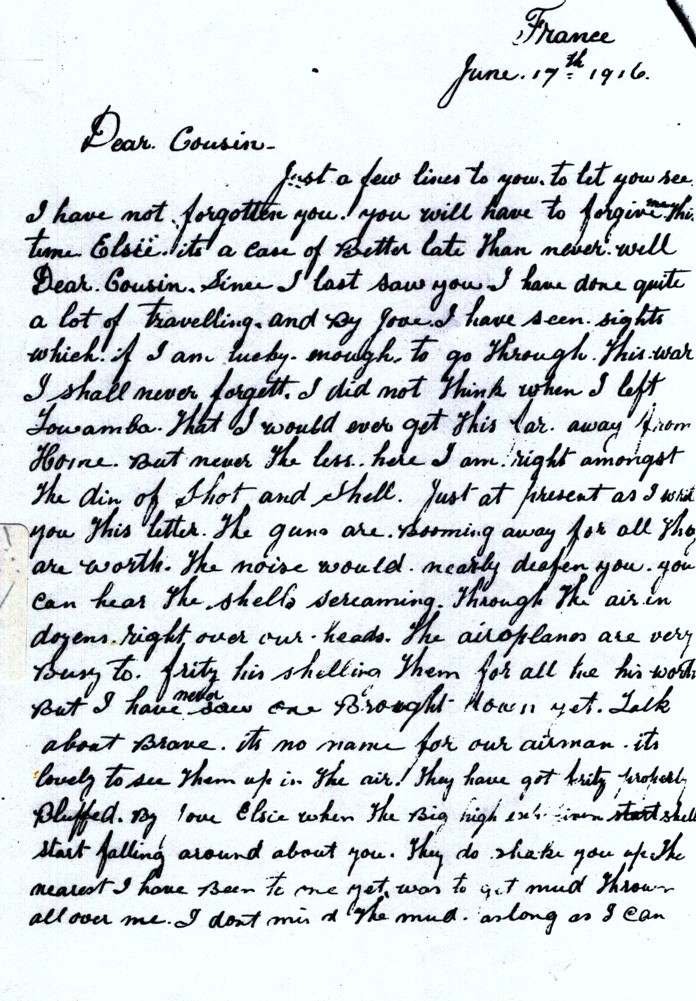 France
June. 17th 1916.
Dear. Cousin-
Just a few lines to you. to let you see
I have not forgotten you. you will have to forgive me This
time Elsie. its a case of Better late Than never. well
Dear. Cousin. Since I last saw you. I have done quite
a lot of travelling. and By Jove. I have seen sights
which. if I am lucky. enough. to go Through. This war
I shall never forgett. I did not Think when I left
Towamba. That I would ever get This far. away from
Home. But never The less. here I am. right amongst
The din of Shot and Shell. Just at present as I write
you This letter. The guns are. Booming away for all They
are worth. The noise would. nearly deafen you. you
can hear The shells screaming. Through The air in
dozens. right over our heads. The airoplanes are very
Busy to. fritz his shelling Them for all he his worth
But I have never saw one Brought down yet. Talk
about Brave. its no name for our airman. its
lovely to see Them up in The air. They have got fritz properly
Bluffed. By Jove Elsie when The Big high start shells
start falling around about you. They do shake you up. The
nearest I have Been to me yet. was to get mud Thrown
all over me. I dont mind The mud. aslong as I can